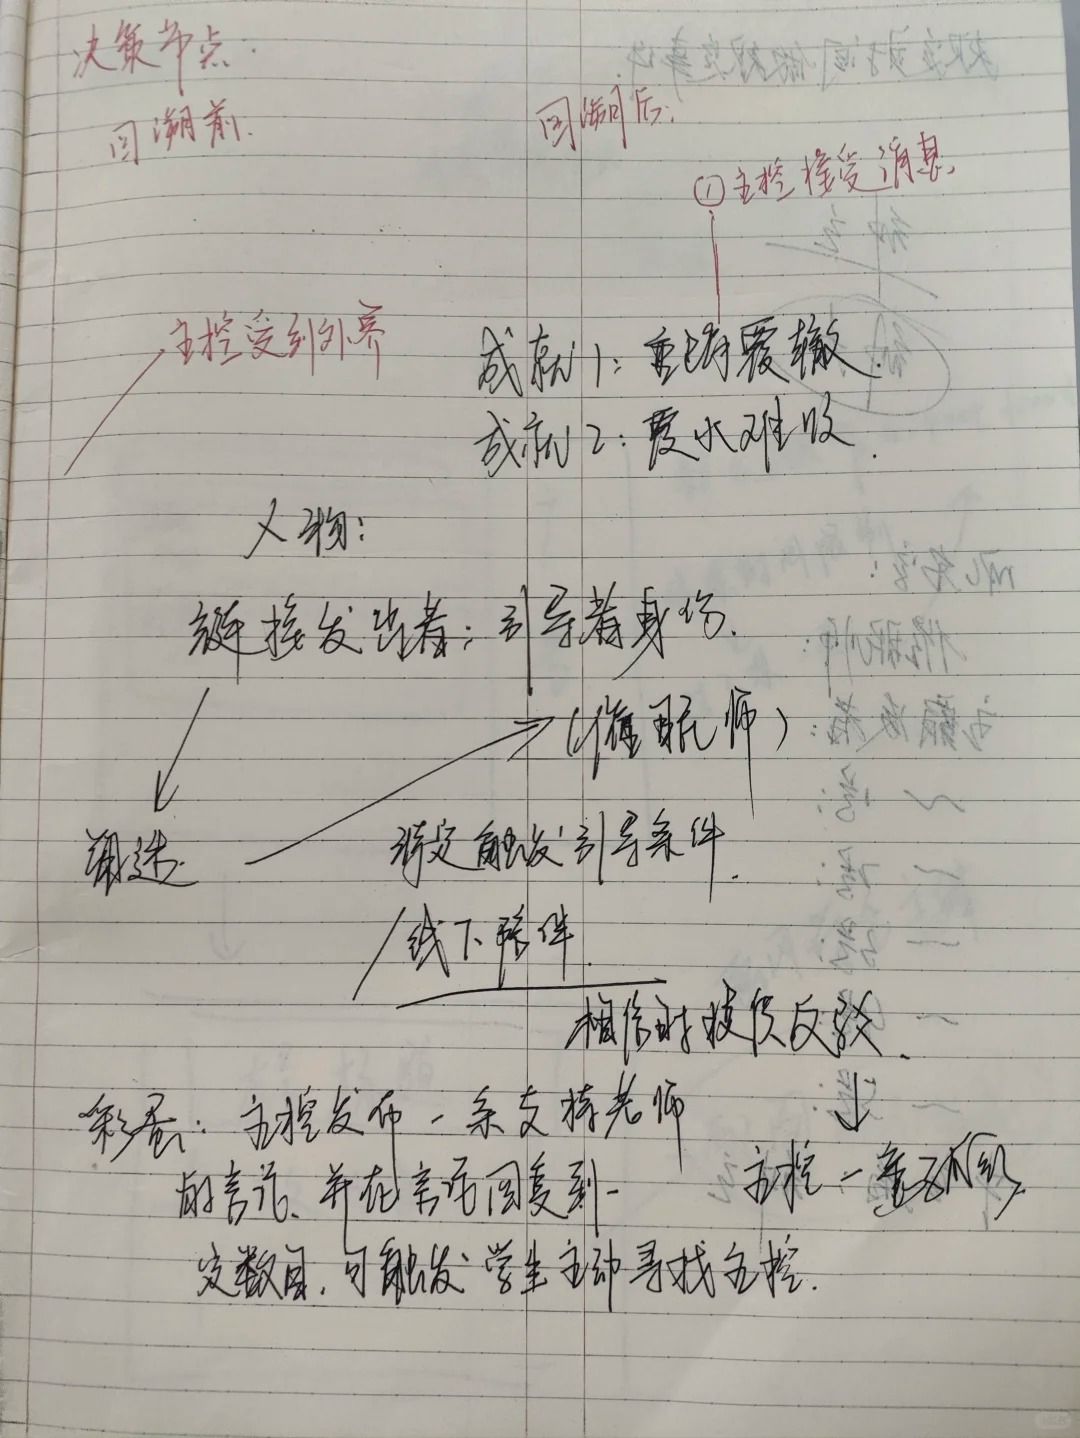 决策节点:
回溯前.
回溯后:
①主控接受消息
主控受到外界
成就1:重蹈覆辙.
成就2:覆水难收.
人物:
链接发出者:引导者身份.
(催眠师)
阐述. 特定触发引导条件.
线下条件.
相信时持续反驳.
彩蛋:主控发布一条支持老师
的言论、并在言语回复到一
主控一
定数目,可触发学生主动寻找主控.